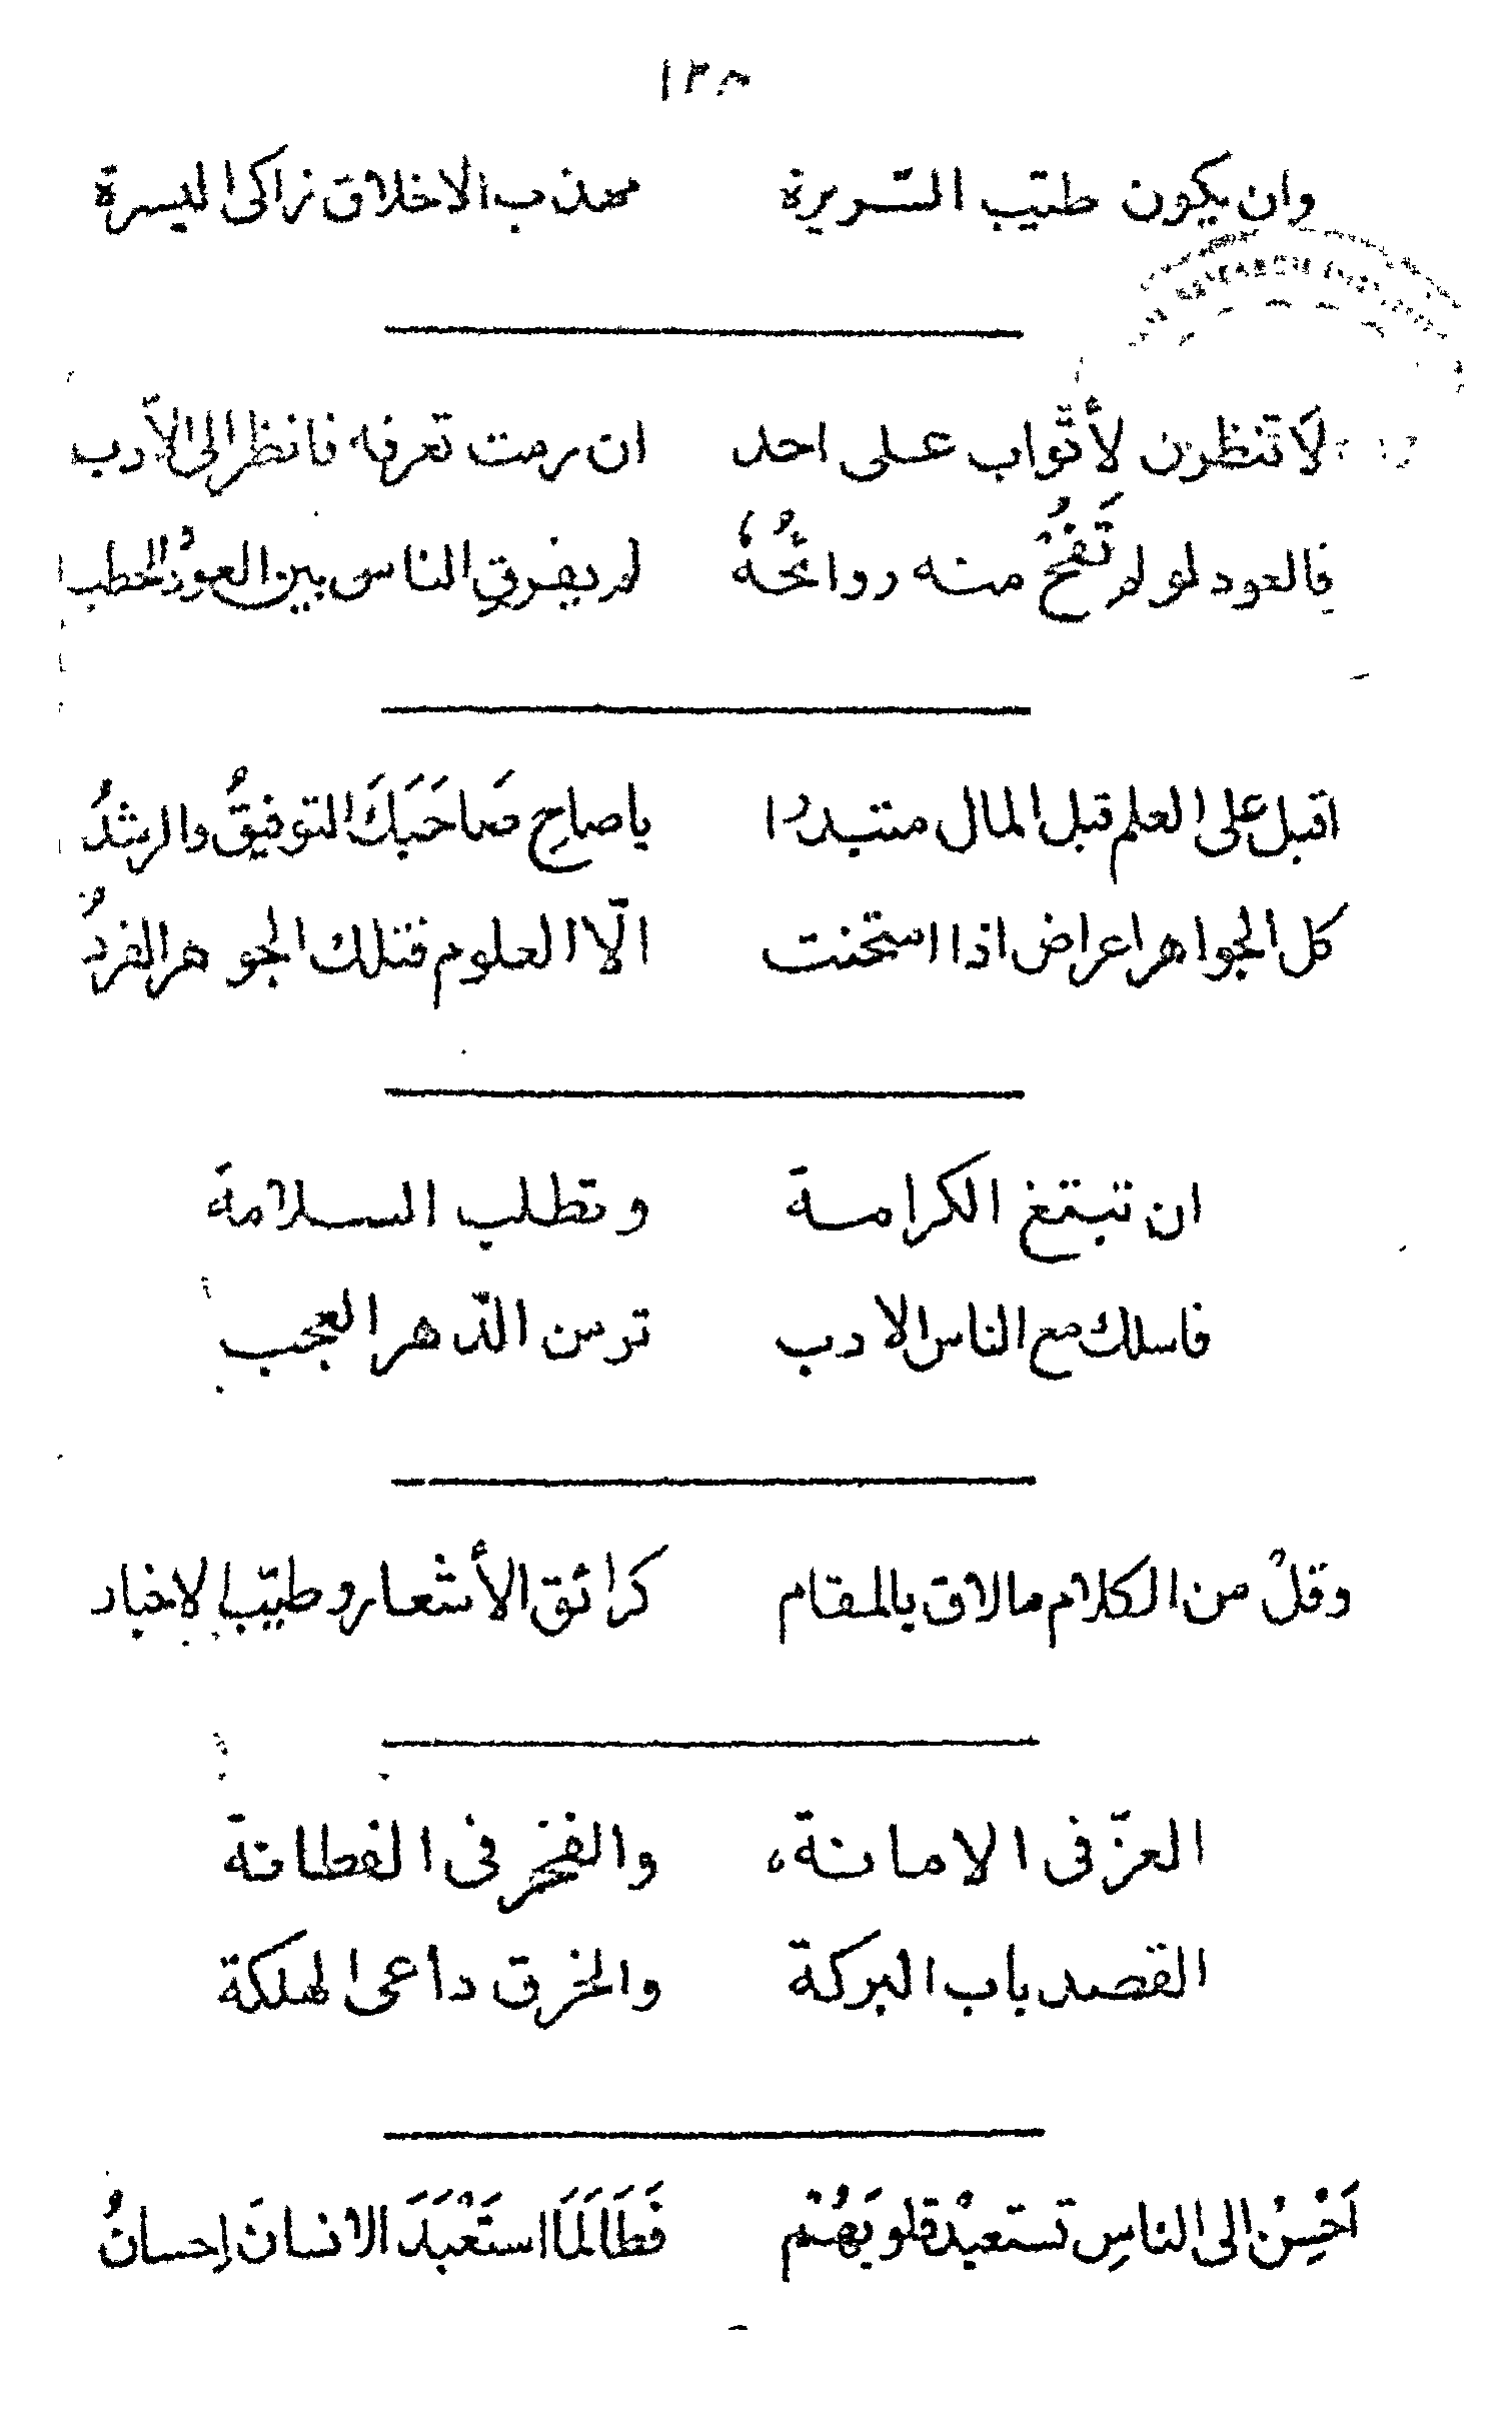 ١٢٨
وان يكون طيّب السّريرة مهذب الاخلاق زاكى اليسرة
لَا تنظرن لأثواب على احد ان رمت تعرفه فانظر الى الأدب
فالعود لو لم تَفُحْ منه روائحُهُ لم يفرق الناس بين العودُ الحطب
اقبل على العلم قبل المال مبتدرا يا صاحِ صَاحَبَكَ التوفيقُ والرشدُ
كل الجواهر اعراض اذا امتحنت الّا العلوم فتلك الجوهر الفردُ
ان تبتغ الكرامة وتطلب السلامة
فاسلك مع الناس الادب تر من الدّهر العجب
وقلْ من الكلام مالاق بالمقام كرائق الأشعار وطيّب الاخبار
العزّ فى الامانة، والفخر فى الفطانة
القصد باب البركة والخرق داعى الهلكة
اَحْسِنْ الى الناسِ تستعبدْ قلوبَهُم فَطَالَمَا استَعْبَدَ الانسانَ إحسانُ
RESEARCH